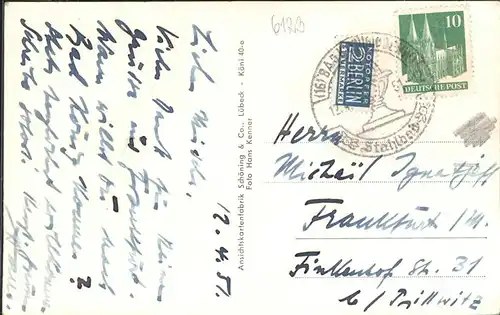 61729
Lieber Mischa,
Vielen Dank für Deinen
Gruss aus Frankfurt.
Wann willst Du nach
Bad König kommen?
Stets herzlichst willkommen
12.4.51.
Ansichtskartenfabrik Schöning & Co., Lübeck - Köni 40-o
Foto Hans Kennar
(16) BAD
Stahlbad
NOTOPFER
2 BERLIN
STEUERMARKE
10
DEUTSCHE POST
Herrn
Michail Ignatjeff
Frankfurt / M.
Finkenhof Str. 31
b/ Prillwitz